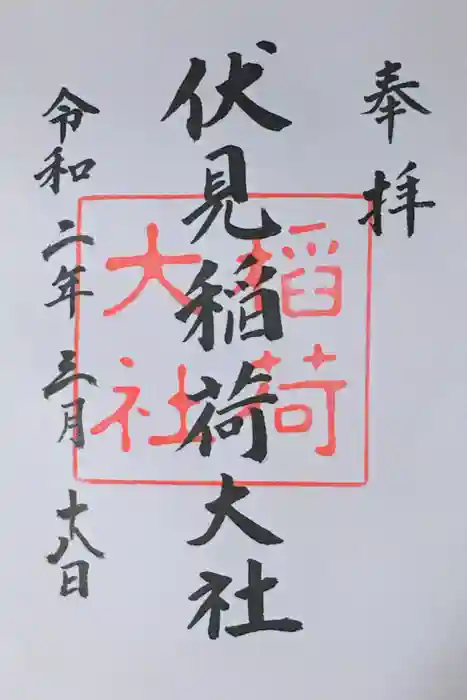 奉拝
伏見稲荷大社
稲荷
大社
令和二年三月十八日